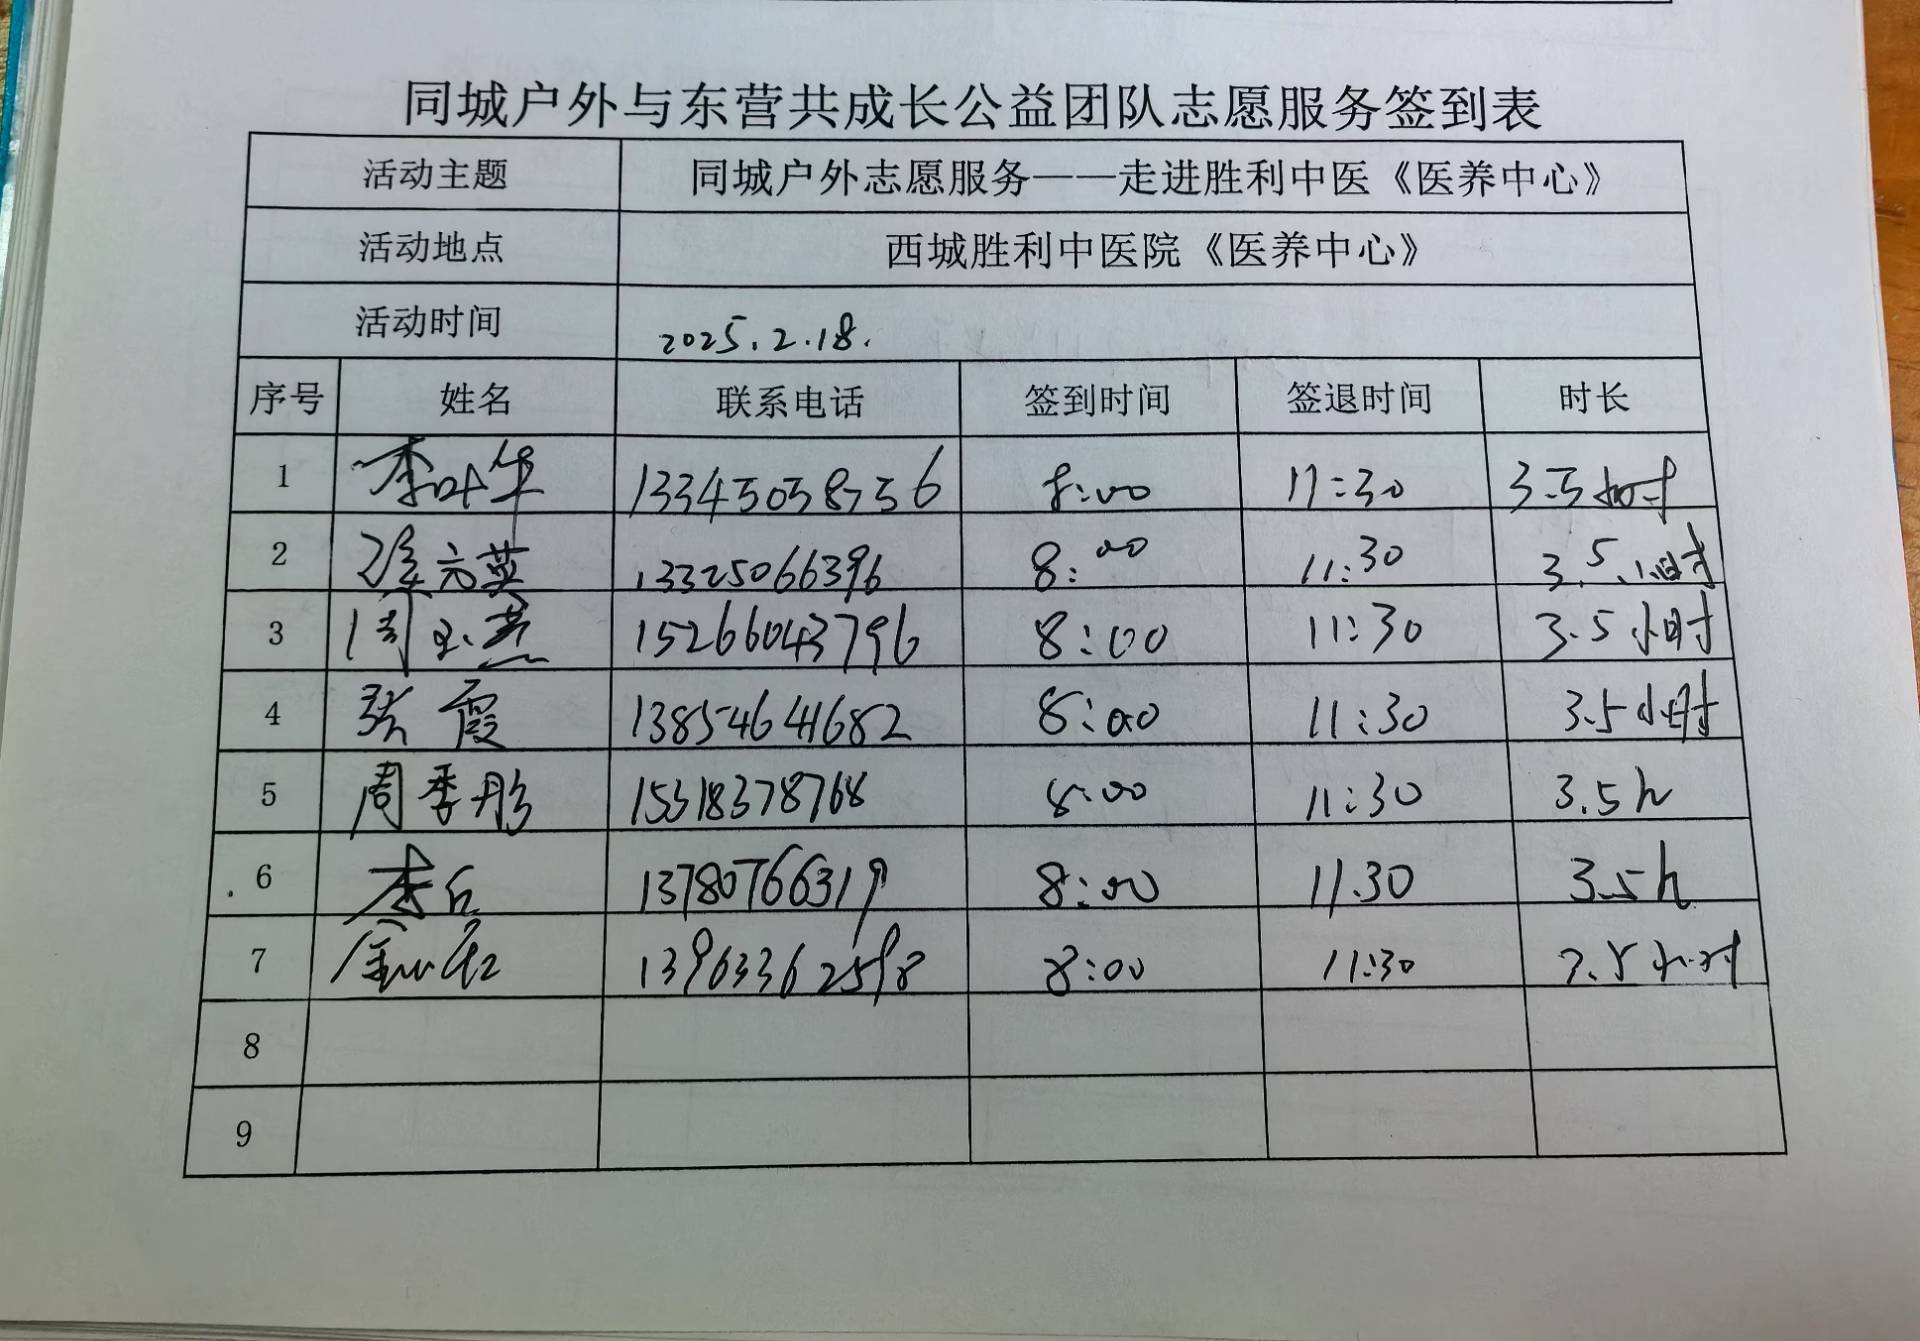 同城户外与东营共成长公益团队志愿服务签到表
活动主题 同城户外志愿服务——走进胜利中医《医养中心》
活动地点 西城胜利中医院《医养中心》
活动时间 2025.2.18.
序号 姓名 联系电话 签到时间 签退时间 时长
1 李叶华 13345058756 8:00 11:30 3.5小时
2 13325066396 8:00 11:30 3.5小时
3 周玉燕 15266043796 8:00 11:30 3.5小时
4 张霞 13854641682 8:00 11:30 3.5小时
5 周季彤 15318378768 8:00 11:30 3.5h
6 13780766319 8:00 11.30 3.5h
7 13963362598 8:00 11:30 3.5小时
8
9